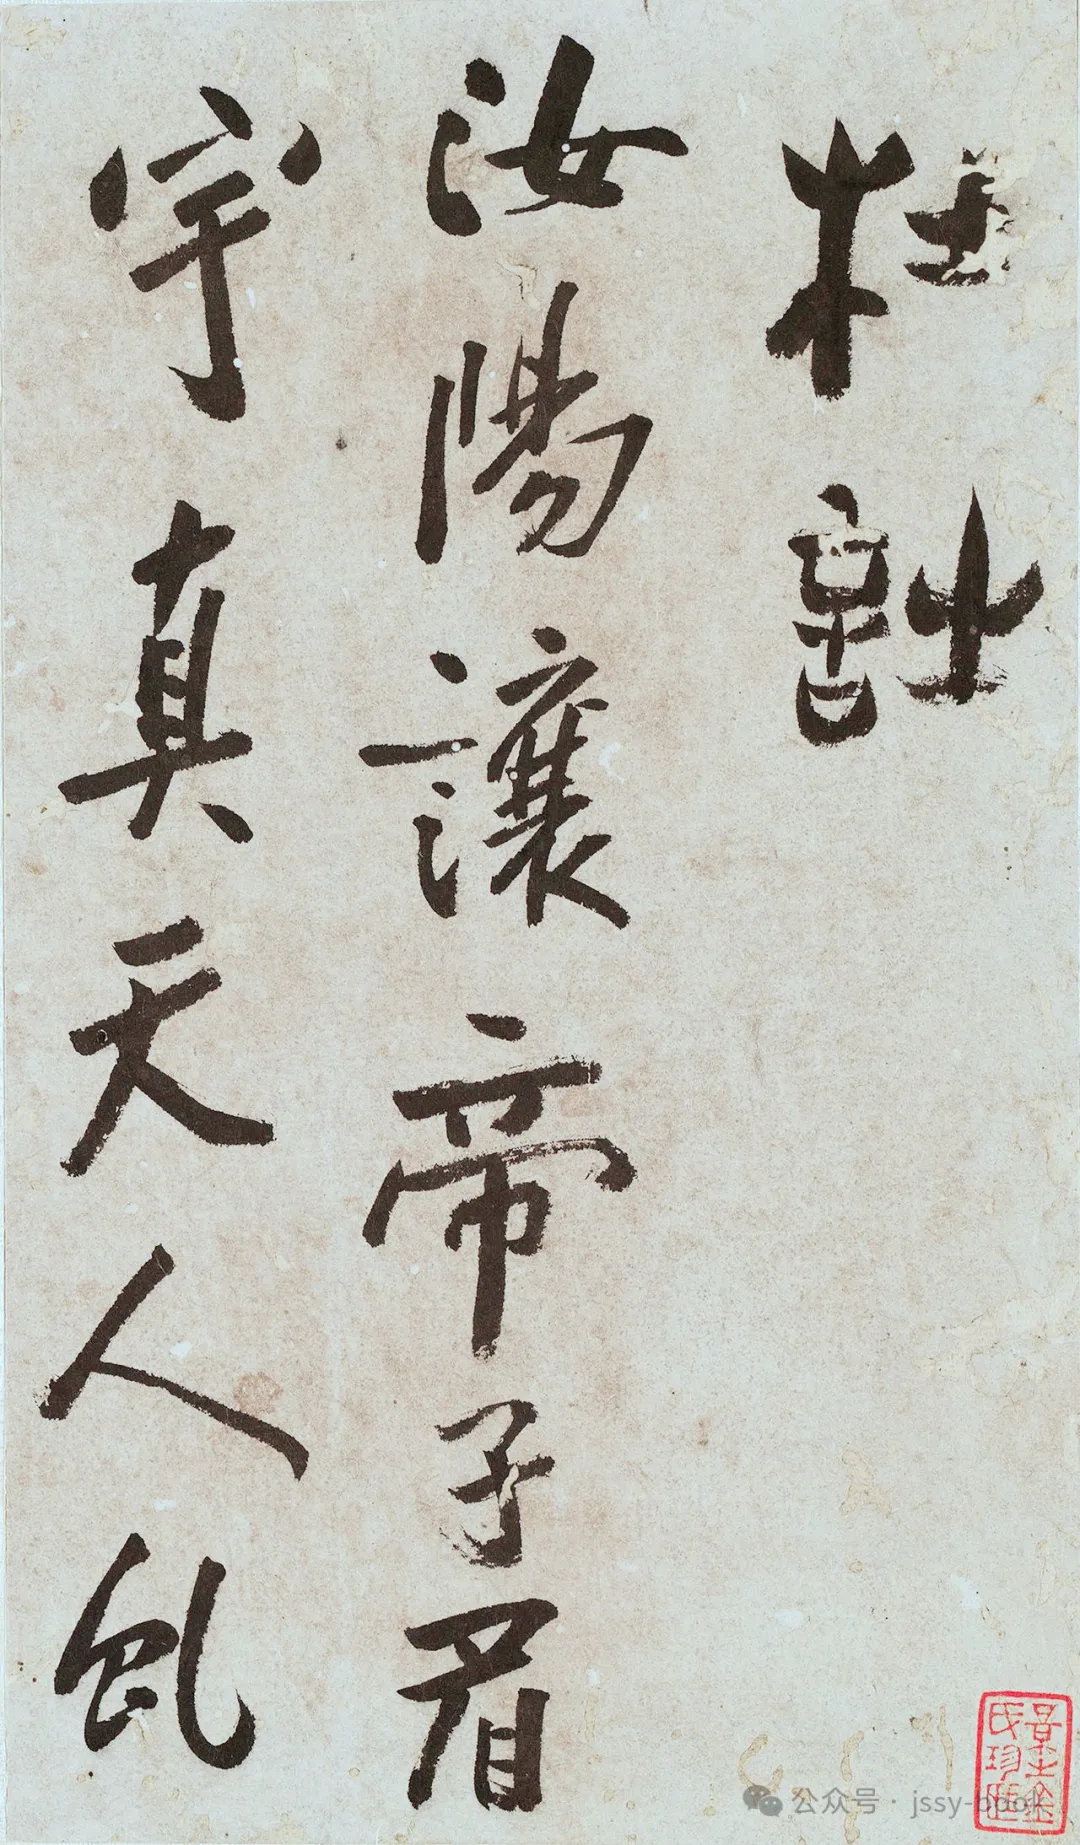 杜詩
汝陽讓帝子眉
宇真天人虬
公众号 · jssy-book